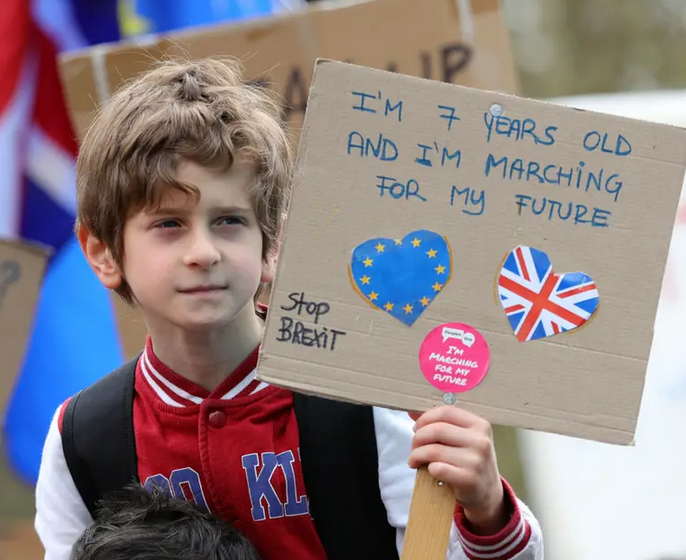 I'M 7 YEARS OLD
AND I'M MARCHING
FOR MY FUTURE
STOP
BREXIT
People's Vote
I'M
MARCHING
FOR MY
FUTURE